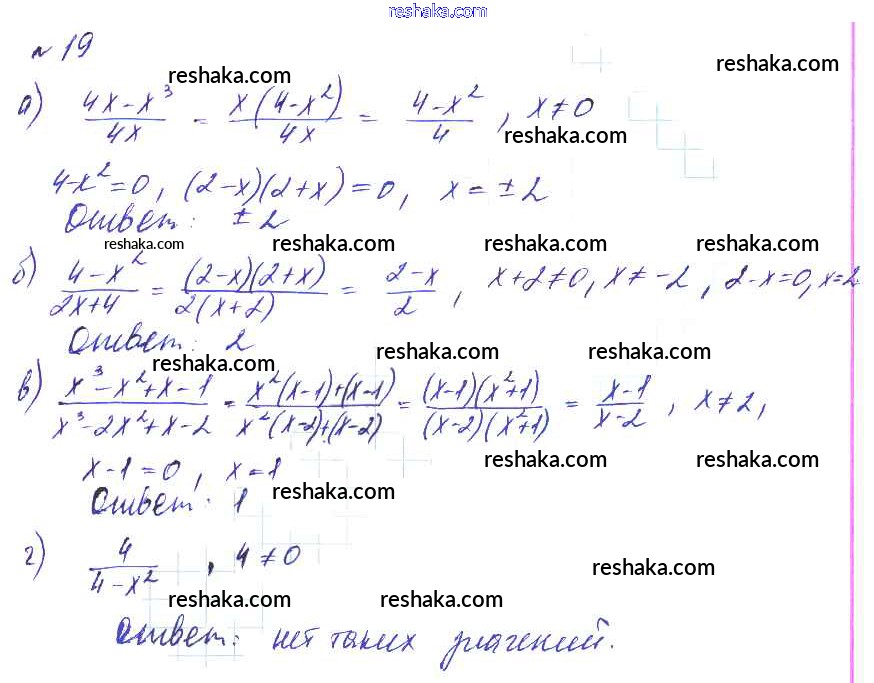 reshaka.com
№ 19
reshaka.com reshaka.com
а) (4x-x³)/(4x) = (x(4-x²))/(4x) = (4-x²)/4 , x≠0
reshaka.com
4-x²=0, (2-x)(2+x)=0, x=±2
Ответ: ±2
reshaka.com reshaka.com reshaka.com reshaka.com
б) (4-x²)/(2x+4) = ((2-x)(2+x))/(2(x+2)) = (2-x)/2 , x+2≠0, x≠-2 , 2-x=0, x=2
Ответ: 2
reshaka.com reshaka.com reshaka.com
в) (x³-x²+x-1)/(x³-2x²+x-2) = (x²(x-1)+(x-1))/(x²(x-2)+(x-2)) = ((x-1)(x²+1))/((x-2)(x²+1)) = (x-1)/(x-2) , x≠2,
reshaka.com reshaka.com
x-1=0, x=1
Ответ: 1
reshaka.com
г) 4/(4-x²) , 4≠0
reshaka.com
reshaka.com reshaka.com
Ответ: нет таких значений.